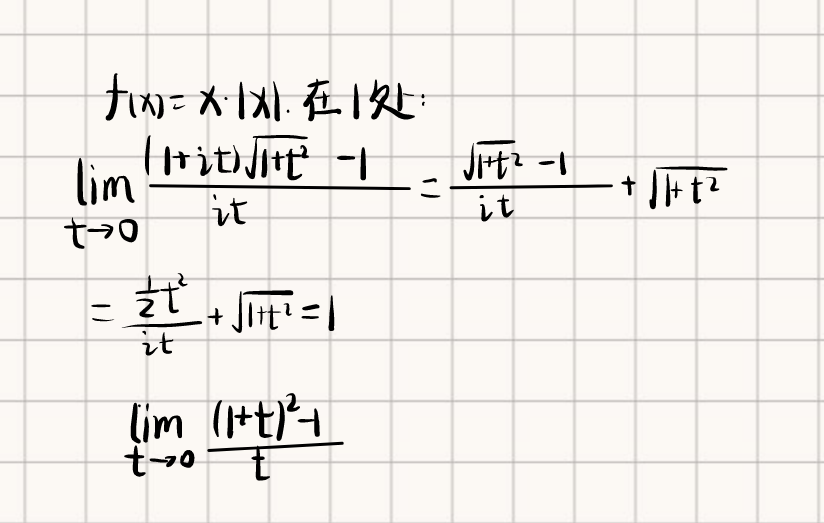 f(x)=x·|x|. 在1处:
lim t→0 ((1+it)√(1+t²) -1)/(it) = (√(1+t²) -1)/(it) + √(1+t²)
= (½t²)/(it) + √(1+t²) = 1
lim t→0 ((1+t)²-1)/t